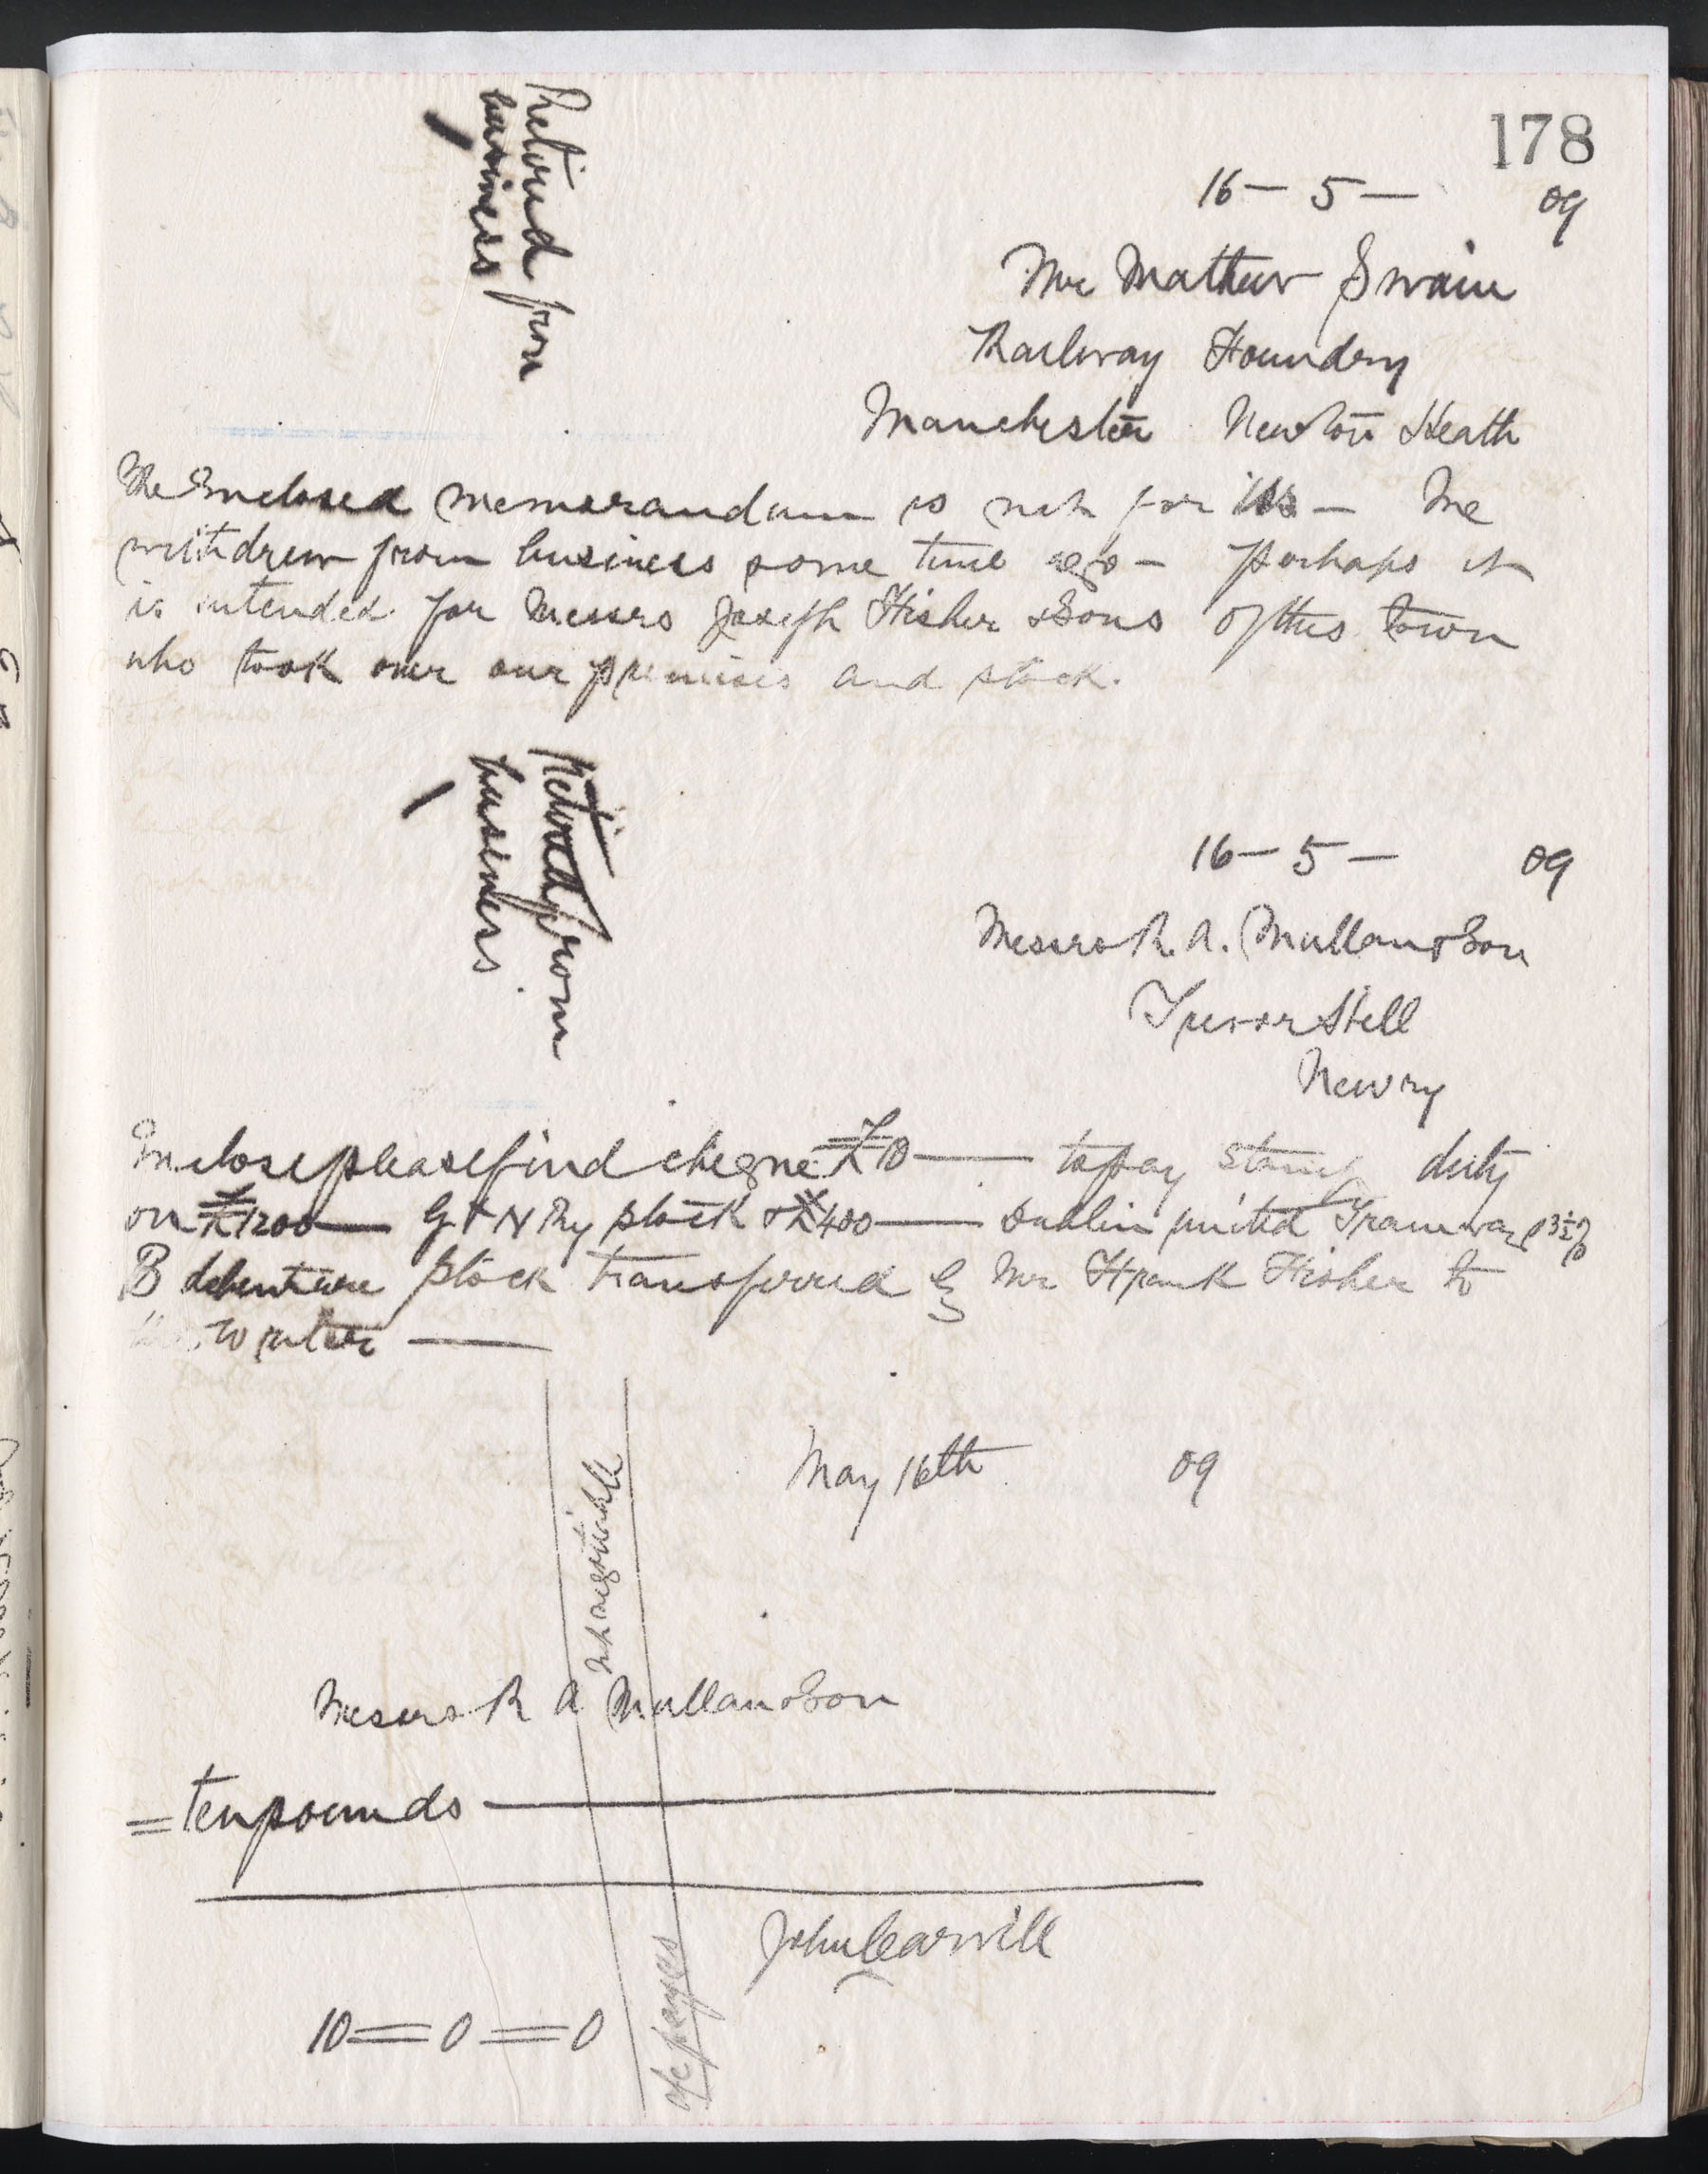 178
Retired from
business
16 — 5 — 09
Mr Mathew Swain
Railway Foundry
Manchester Newton Heath
The Enclosed memorandum is not for us — We
withdrew from business some time ago — Perhaps it
is intended for Messrs Joseph Fisher & Sons of this town
who took over our premises and stock.
Retired from
business
16 — 5 — 09
Messrs R. A. Mullan & Son
Trevor Hill
Newry
Enclose please find cheque £10 — to pay stamp duty
on £1200 — G & N Ry stock & £400 — Dublin united Tramways 3½%
B debenture stock transferred by Mr Frank Fisher to
the writer —
May 16th 09
Not negotiable
Messrs R A Mullan & Son
= ten pounds —
John Carvill
10 = 0 = 0
a/c payees